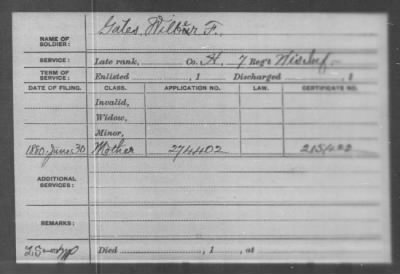 NAME OF SOLDIER: Gates, Wilbur F.
SERVICE: Late rank, Co. H, 7 Reg't Wis Inf
TERM OF SERVICE: Enlisted , 1 Discharged , 1
DATE OF FILING. CLASS. APPLICATION NO. LAW. CERTIFICATE NO.
Invalid,
Widow,
Minor,
1880 June 30 Mother 274402 215422
ADDITIONAL SERVICES:
REMARKS:
Died , 1 , at